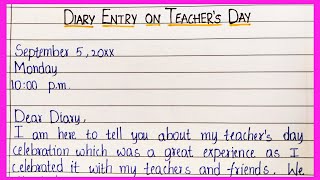 Diary Entry on Teacher's Day
September 5, 20xx
Monday
10:00 p.m.
Dear Diary,
I am here to tell you about my teacher's day
celebration which was a great experience as I
celebrated it with my teachers and friends. We